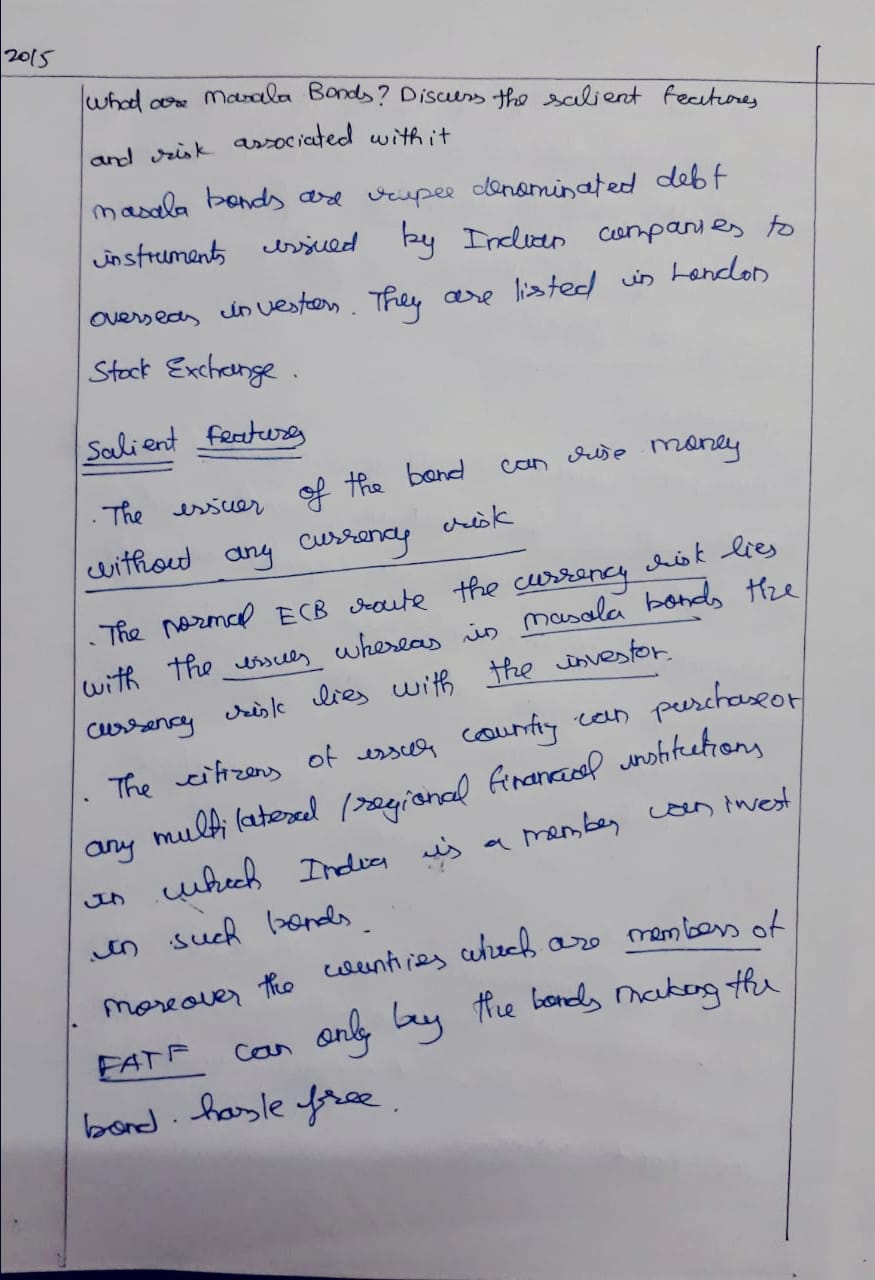 2015
What are Masala Bonds? Discuss the salient features
and risk associated with it
masala bonds are rupee denominated debt
instruments issued by Indian companies to
overseas investors. They are listed in London
Stock Exchange.
Salient features
. The issuer of the bond can rise money
without any currency risk
. The normal ECB route the currency risk lies
with the issuer whereas in masala bonds the
currency risk lies with the investor.
. The citizens of issuer country can purchase or
any multilateral / regional financial institutions
in which India is a member can invest
in such bonds.
. Moreover the countries which are members of
FATF can only buy the bonds making the
bond. hassle free.